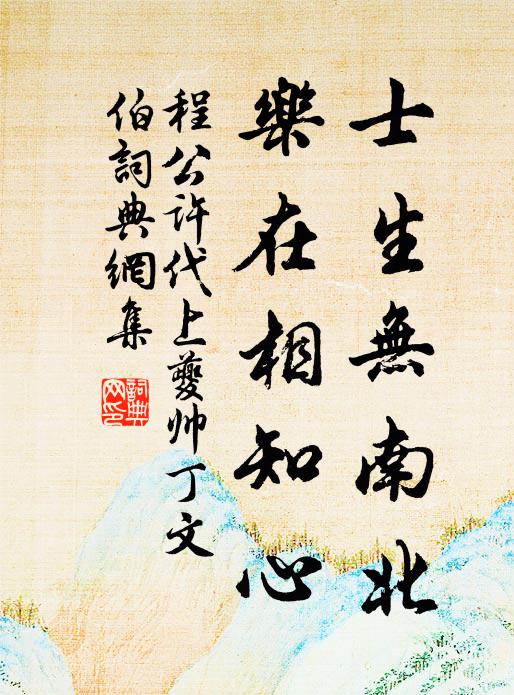 士生無南北
樂在相知心
程公許代上夔帅丁文
伯詞典網集
詞典网印